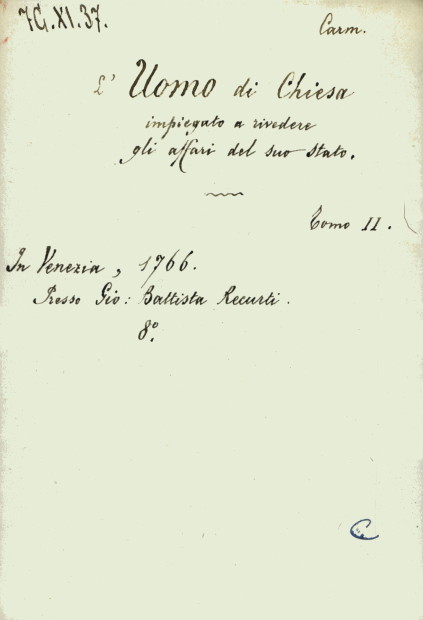 7G.XI.37.
Carm.
L' Uomo di Chiesa
impiegato a rivedere
gli affari del suo stato.
Tomo II.
In Venezia, 1766.
Presso Gio: Battista Recurti.
8º
C